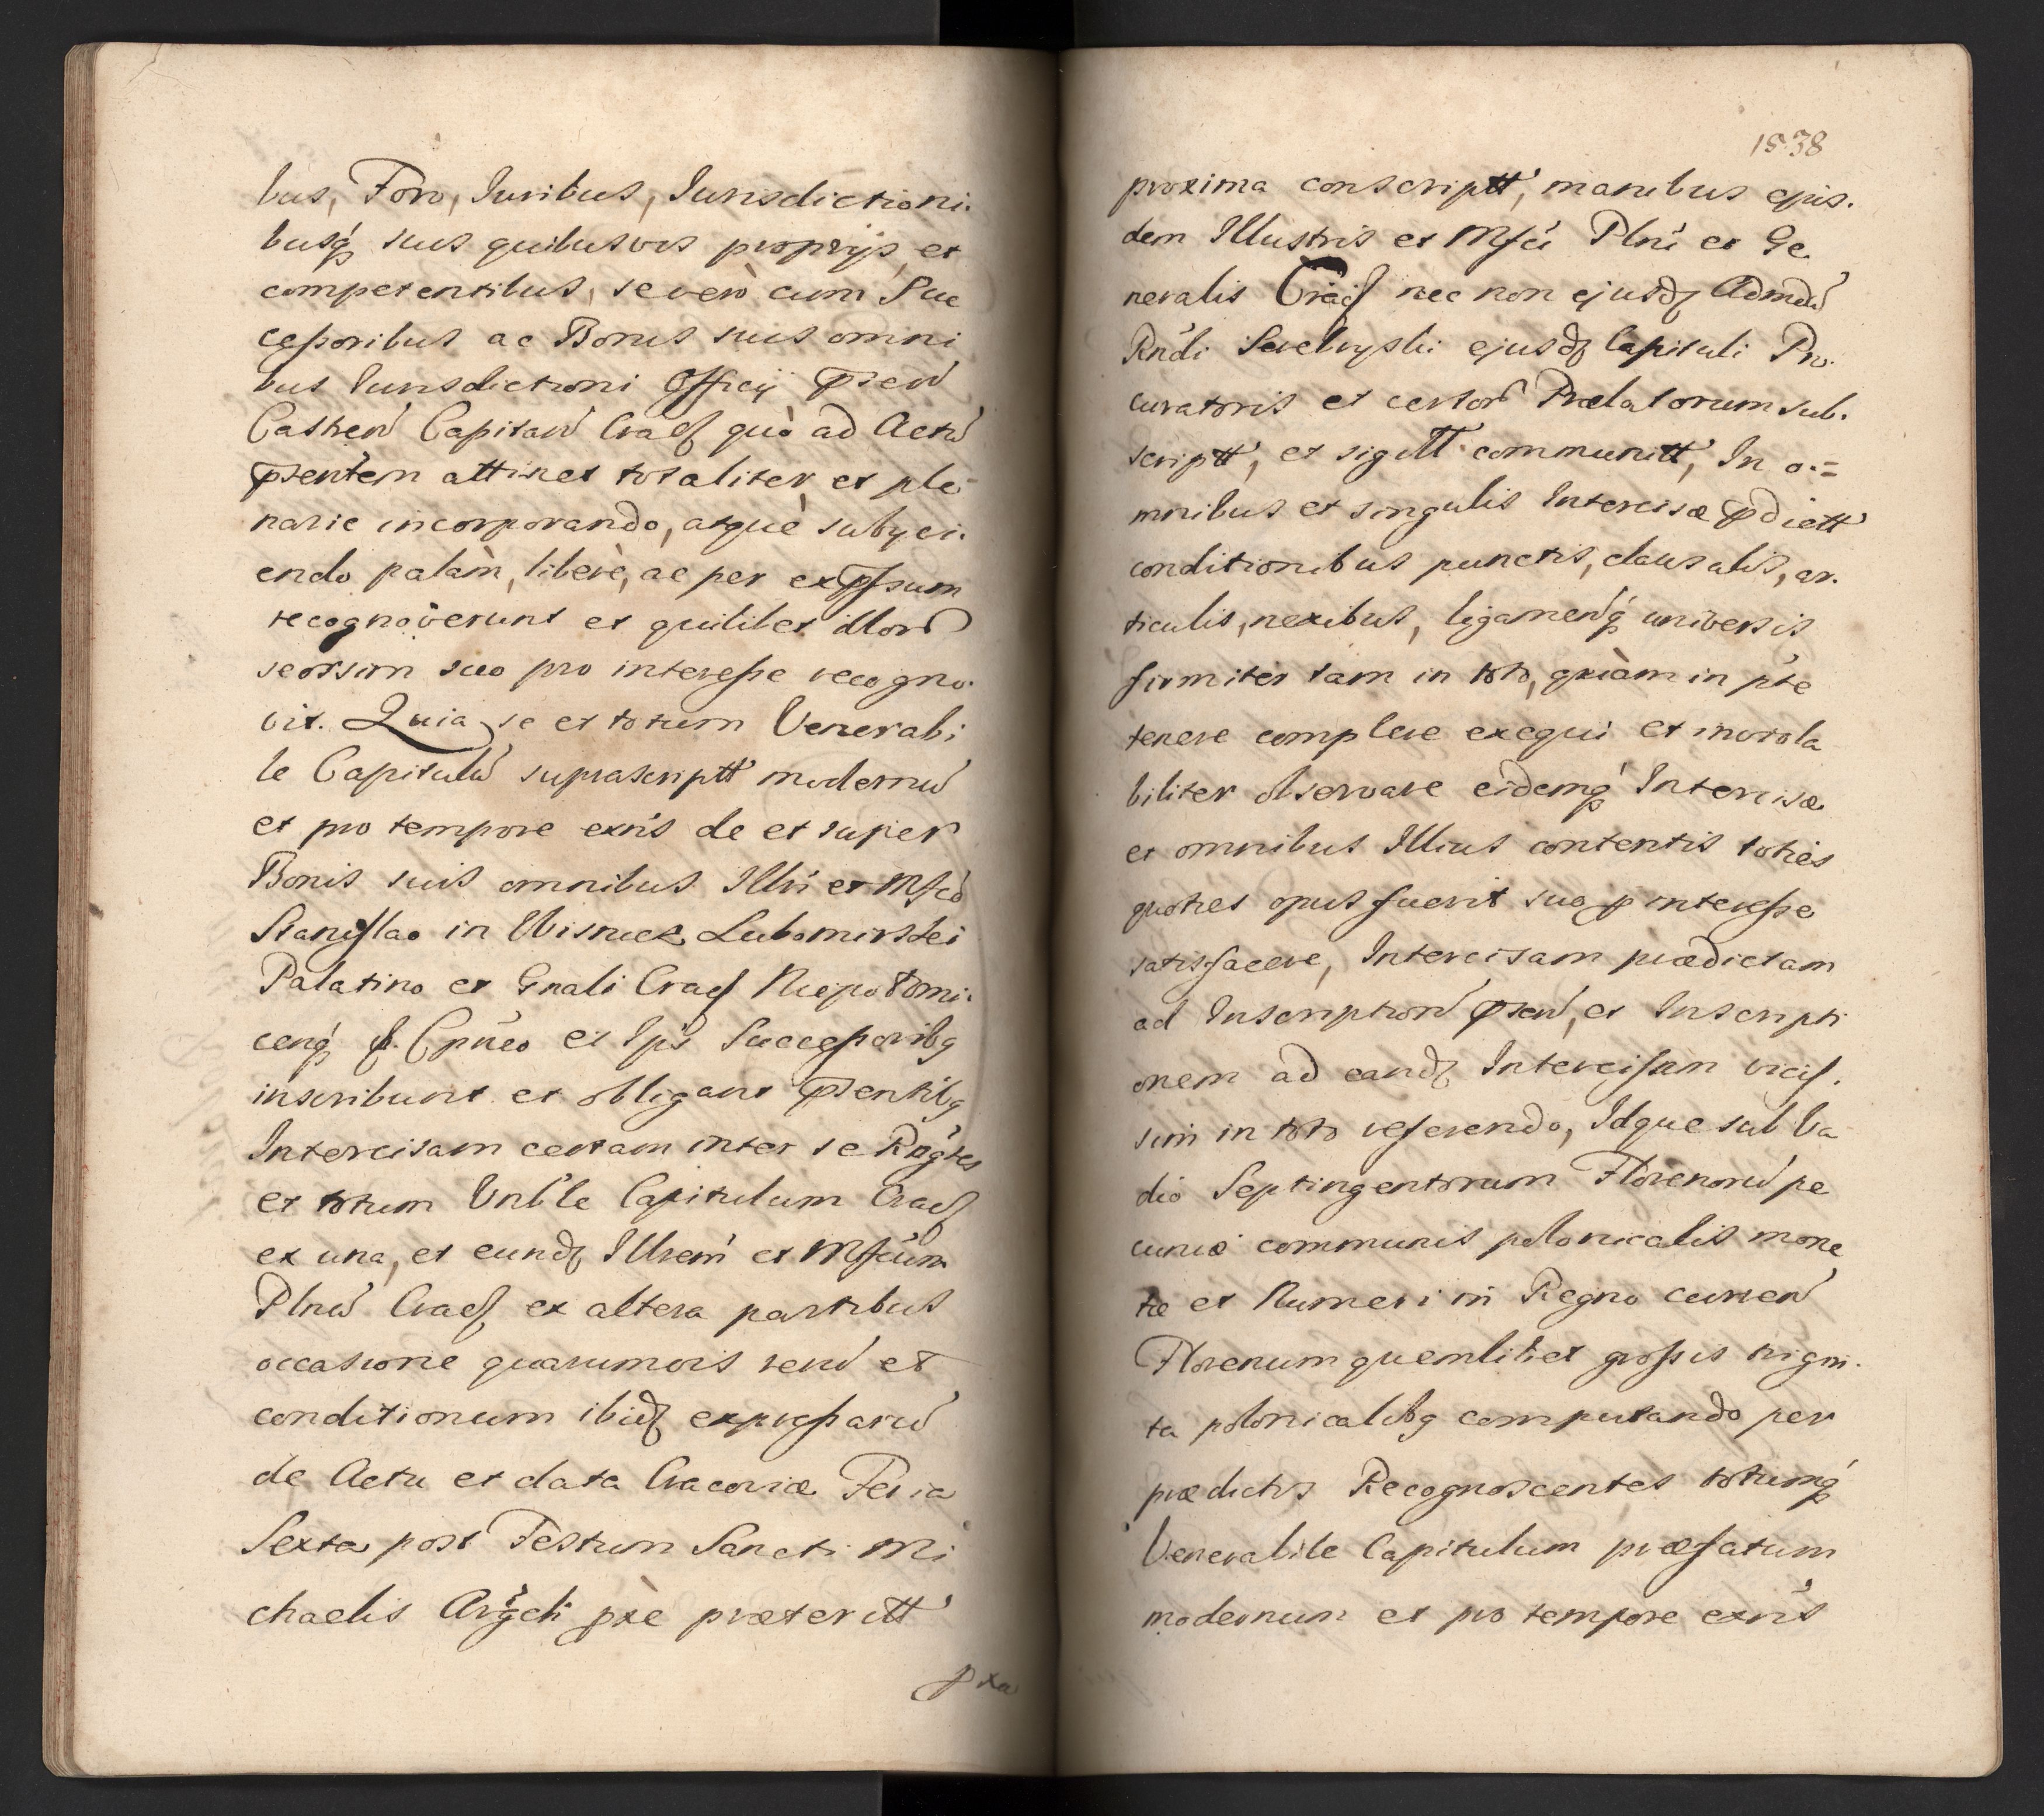 bus, Foro, Iuribus, Iurisdictioni.
busq́ suis quibusvis proprijs et
competentibus, se verò cum Suc
ceßoribus ac Bonis suis omni
bus Iurisdictioni Officij pŕsen
Castren Capitan Crac quò ad Actu
pŕsentem attinet totaliter et ple
narie incorporando, atquè subijci.
endo palàm, liberè, ac per expŕssum
recognoverunt et quilibet illor
seorsim suo pro interesse recogno.
vit. Quia se et totum Venerabi
le Capitulu suprascriptt modernu
et pro tempore exńs de et super
Bonis suis omnibus Illri et Mfco
Stanislao in Wisnicz Lubomirski
Palatino et Gnali Crac Niepotomi.
cenq́ Cpńeo et Ipś Succeßoribg
inscribunt et obligant pŕsentibg
Intercisam certam inter se Rnǵtes
et totum Vnble Capitulum Crac
ex una, et eund Illrem et Mfcum
Plnu Crac ex altera partibus
occasione quarumvis reru et
conditionum ibid expreßaru
de Actu et data Cracoviæ Feria
Sexta post Festum Sancti Mi
chaelis Arǵeli pxè præteritt
pxa
1538
proxima conscriptt, manibus ejus.
dem Illustris et Mfci Plni et Ge
neralis Crac nec non ejusd Admdu
Rńdi Serebryski ejusd Capituli Pro.
curatoris et certor Prælatorum sub.
scriptt, et sigill communitt, In o=
mnibus et singulis Intercisæ pŕdictt
conditionibus punctis, clausulis, ar.
ticulis, nexibus, ligamenq́ universis
firmiter tam in toto, quàm in pŕte
tenere complere exequi et inviola
biliter observare eidemq́ Intercisæ
et omnibus Illius contentis toties
quoties opus fuerit suo p interesse
satisfacere, Intercisam prædictam
ad Inscription pŕsen, et Inscripti
onem ad eand Intercisam vicis.
sim in toto referendo, Idque sub Va
dio Septingentorum Florenoru pe
cuniæ communis polonicalis mone
tæ et Numeri in Regno curren
Florenum quemlibet großis trigin.
ta polonicalibg computando per
prædictos Recognoscentes totumq́
Venerabile Capitulum præfatum
modernum et pro tempore exńs